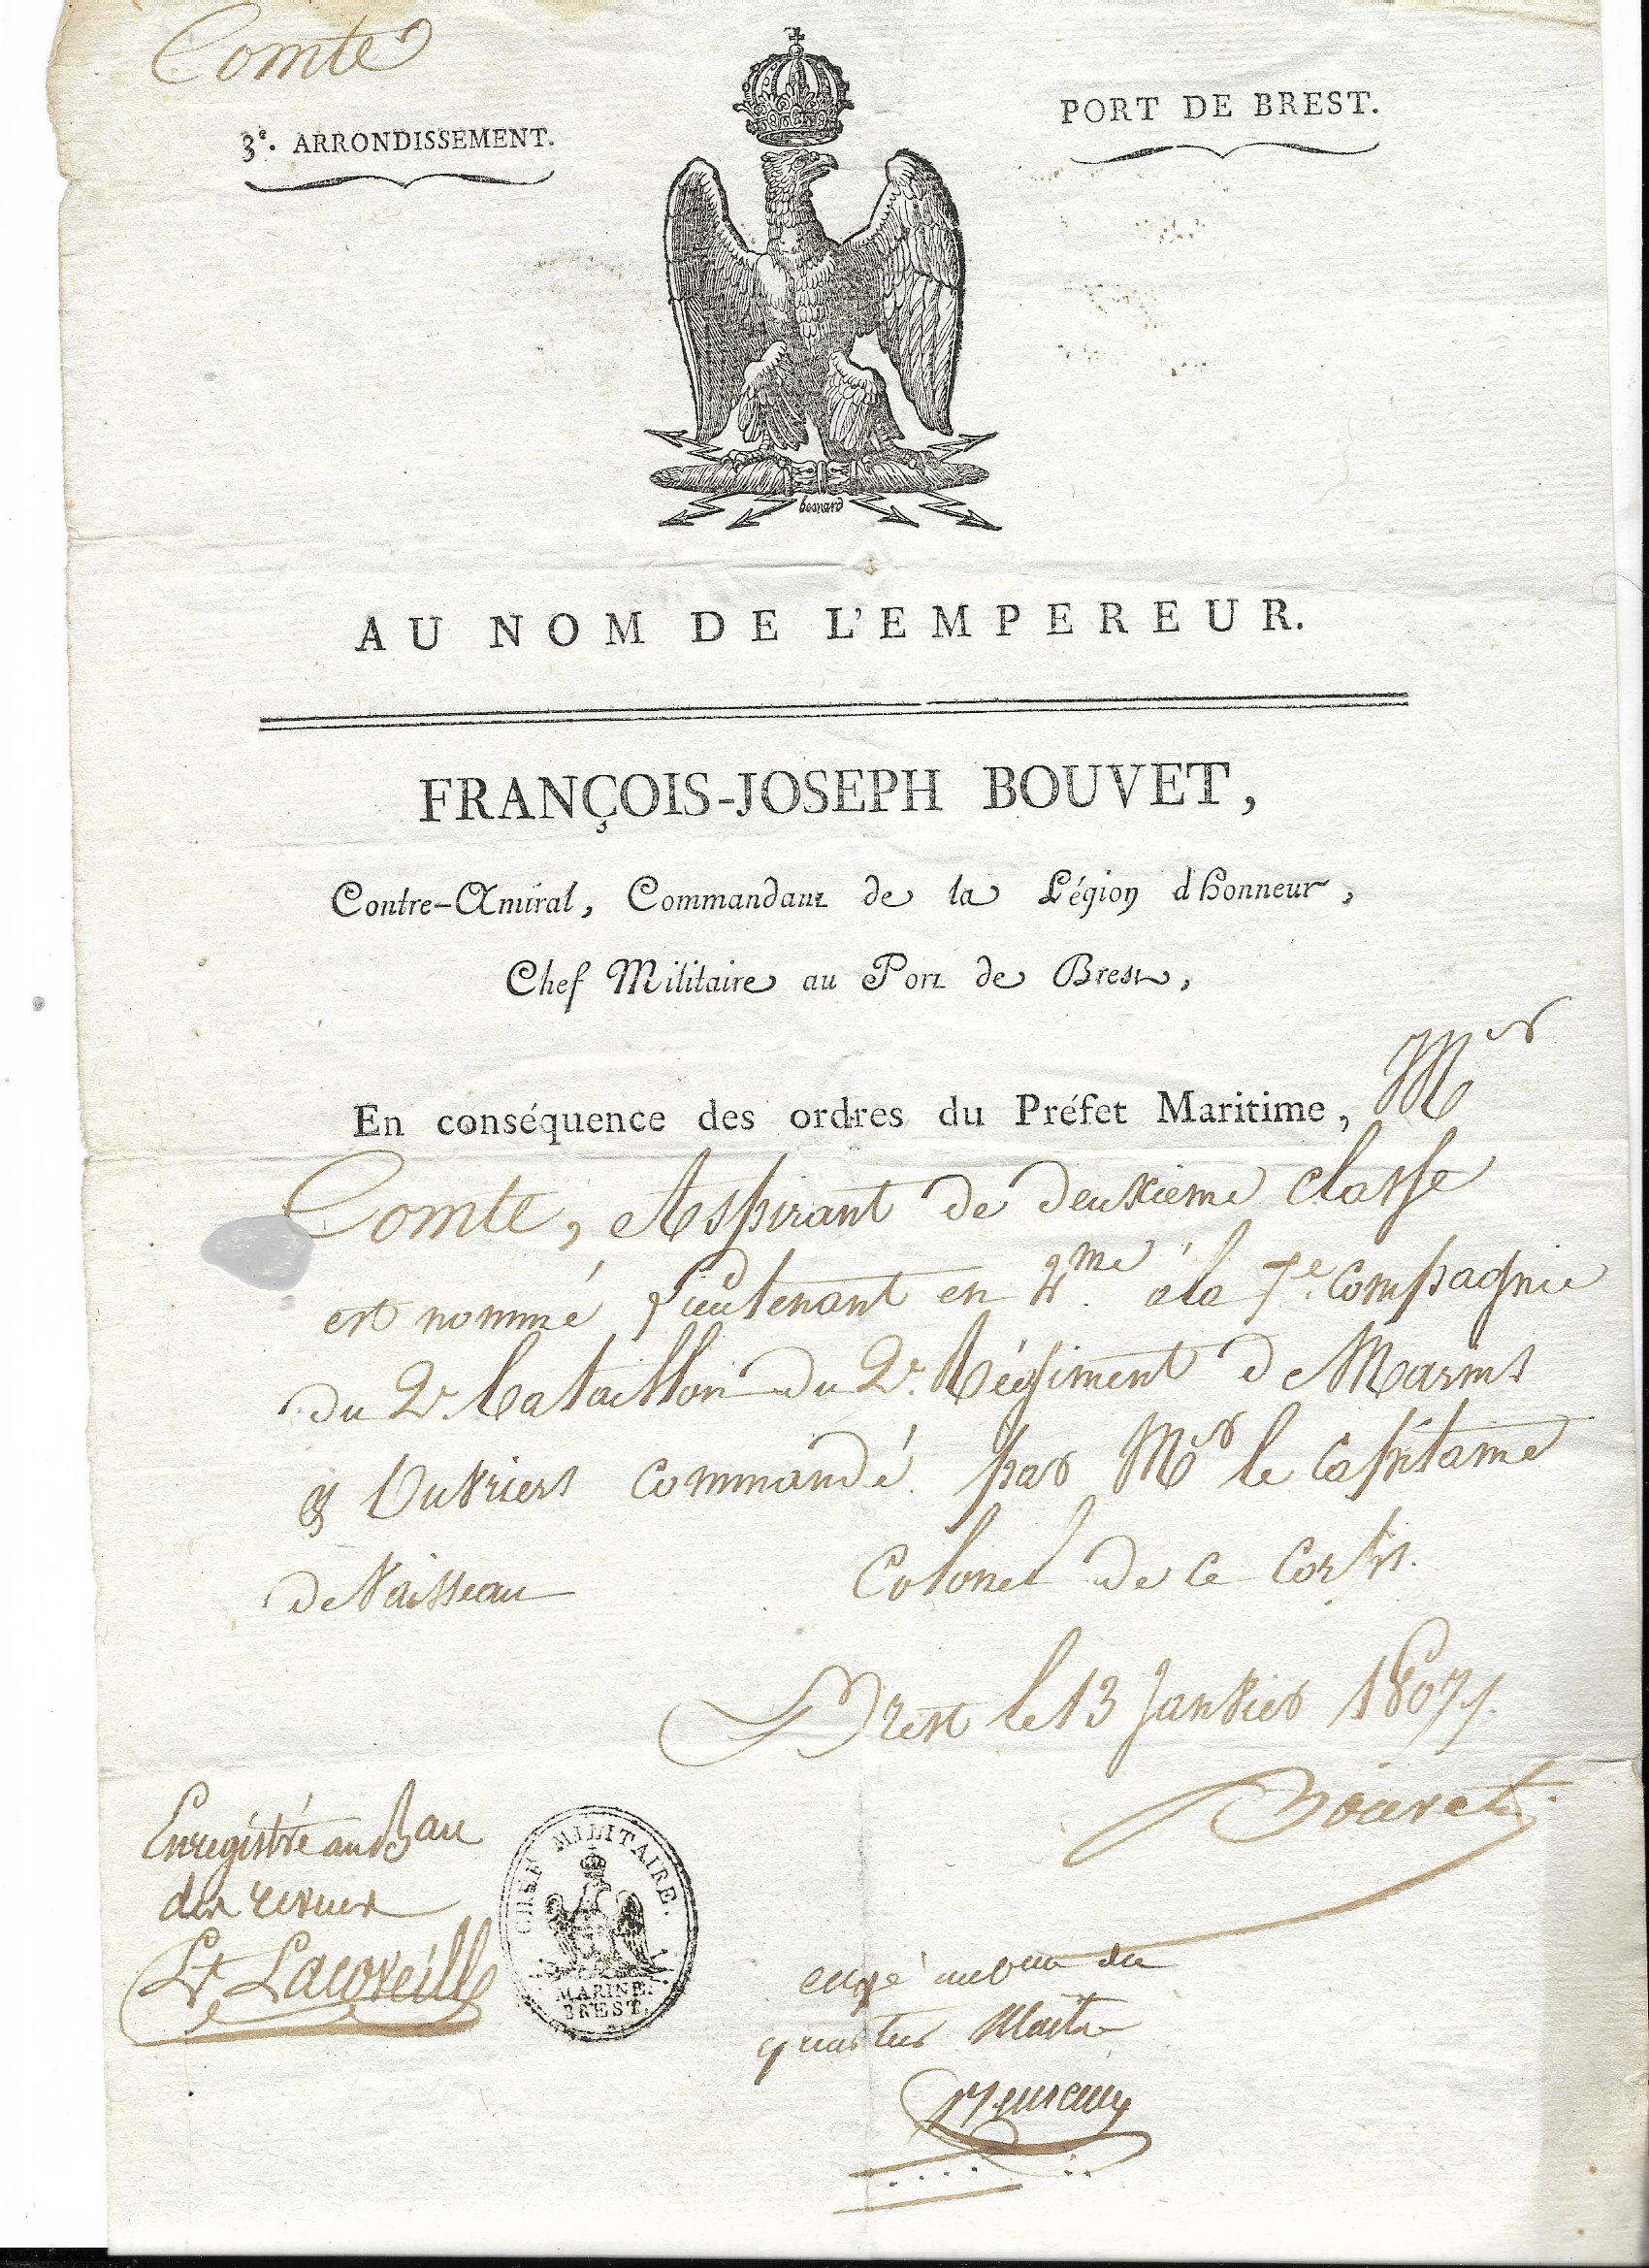 Comte
3e. ARRONDISSEMENT.
PORT DE BREST.
besnard
AU NOM DE L'EMPEREUR.
FRANÇOIS-JOSEPH BOUVET,
Contre-Amiral, Commandant de la Légion d'honneur,
Chef Militaire au Port de Brest,
En conséquence des ordres du Préfet Maritime, Mr
Comte, Aspirant de deuxieme classe
est nommé Lieutenant en 4me. à la 7e. Compagnie
du 2e. bataillon du 2e. Régiment de Marins
& Ouvriers commandé par Mr le Capitaine
de Vaisseau Colonel de ce Corps.
Brest le 13 Janvier 1807.
Bouvet
Enregistré au Bau
des revues
CHEF MILITAIRE.
MARINE.
BREST.
du
quartier Maitre